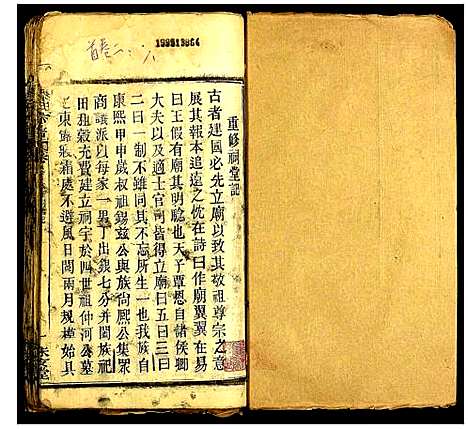 首卷二·六
199513964
重修祠堂記
古者建國必先立廟以致其敬祖尊宗之意
展其報本追遠之忱在詩曰作廟翼翼在易
曰王假有廟其明騐也天子覃恩自諸侯卿
大夫以及適士官司皆得立廟曰五曰三曰
二曰一制不雖同其不忘所生一也我族自
康熙甲申歲叔祖錫茲公與族尚熙公集眾
商議派以每家一男丁出銀七分并闔族祀
田租穀充費建立祠宇於四世祖仲河公墓
之東條張霜處不避風日閱兩月規模始具